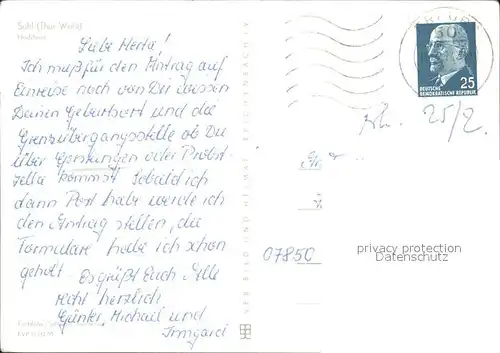 Suhl (Thür. Wald)
Hochhaus
Liebe Herta!
Ich muß für den Antrag auf
Einreise noch von Dir wissen
Deinen Geburtsort und die
Grenzübergangsstelle ob Du
über Gerstungen oder Probst-
zella kommst. Sobald ich
dann Post habe werde ich
den Antrag stellen, die
Formulare habe ich schon
geholt.
Es grüßt Euch Alle
recht herzlich
Günter, Michael und
Irmgard
VEB BILD UND HEIMAT REICHENBACH
25
DEUTSCHE
DEMOKRATISCHE REPUBLIK
25/2.
0785C
privacy protection
Datenschutz